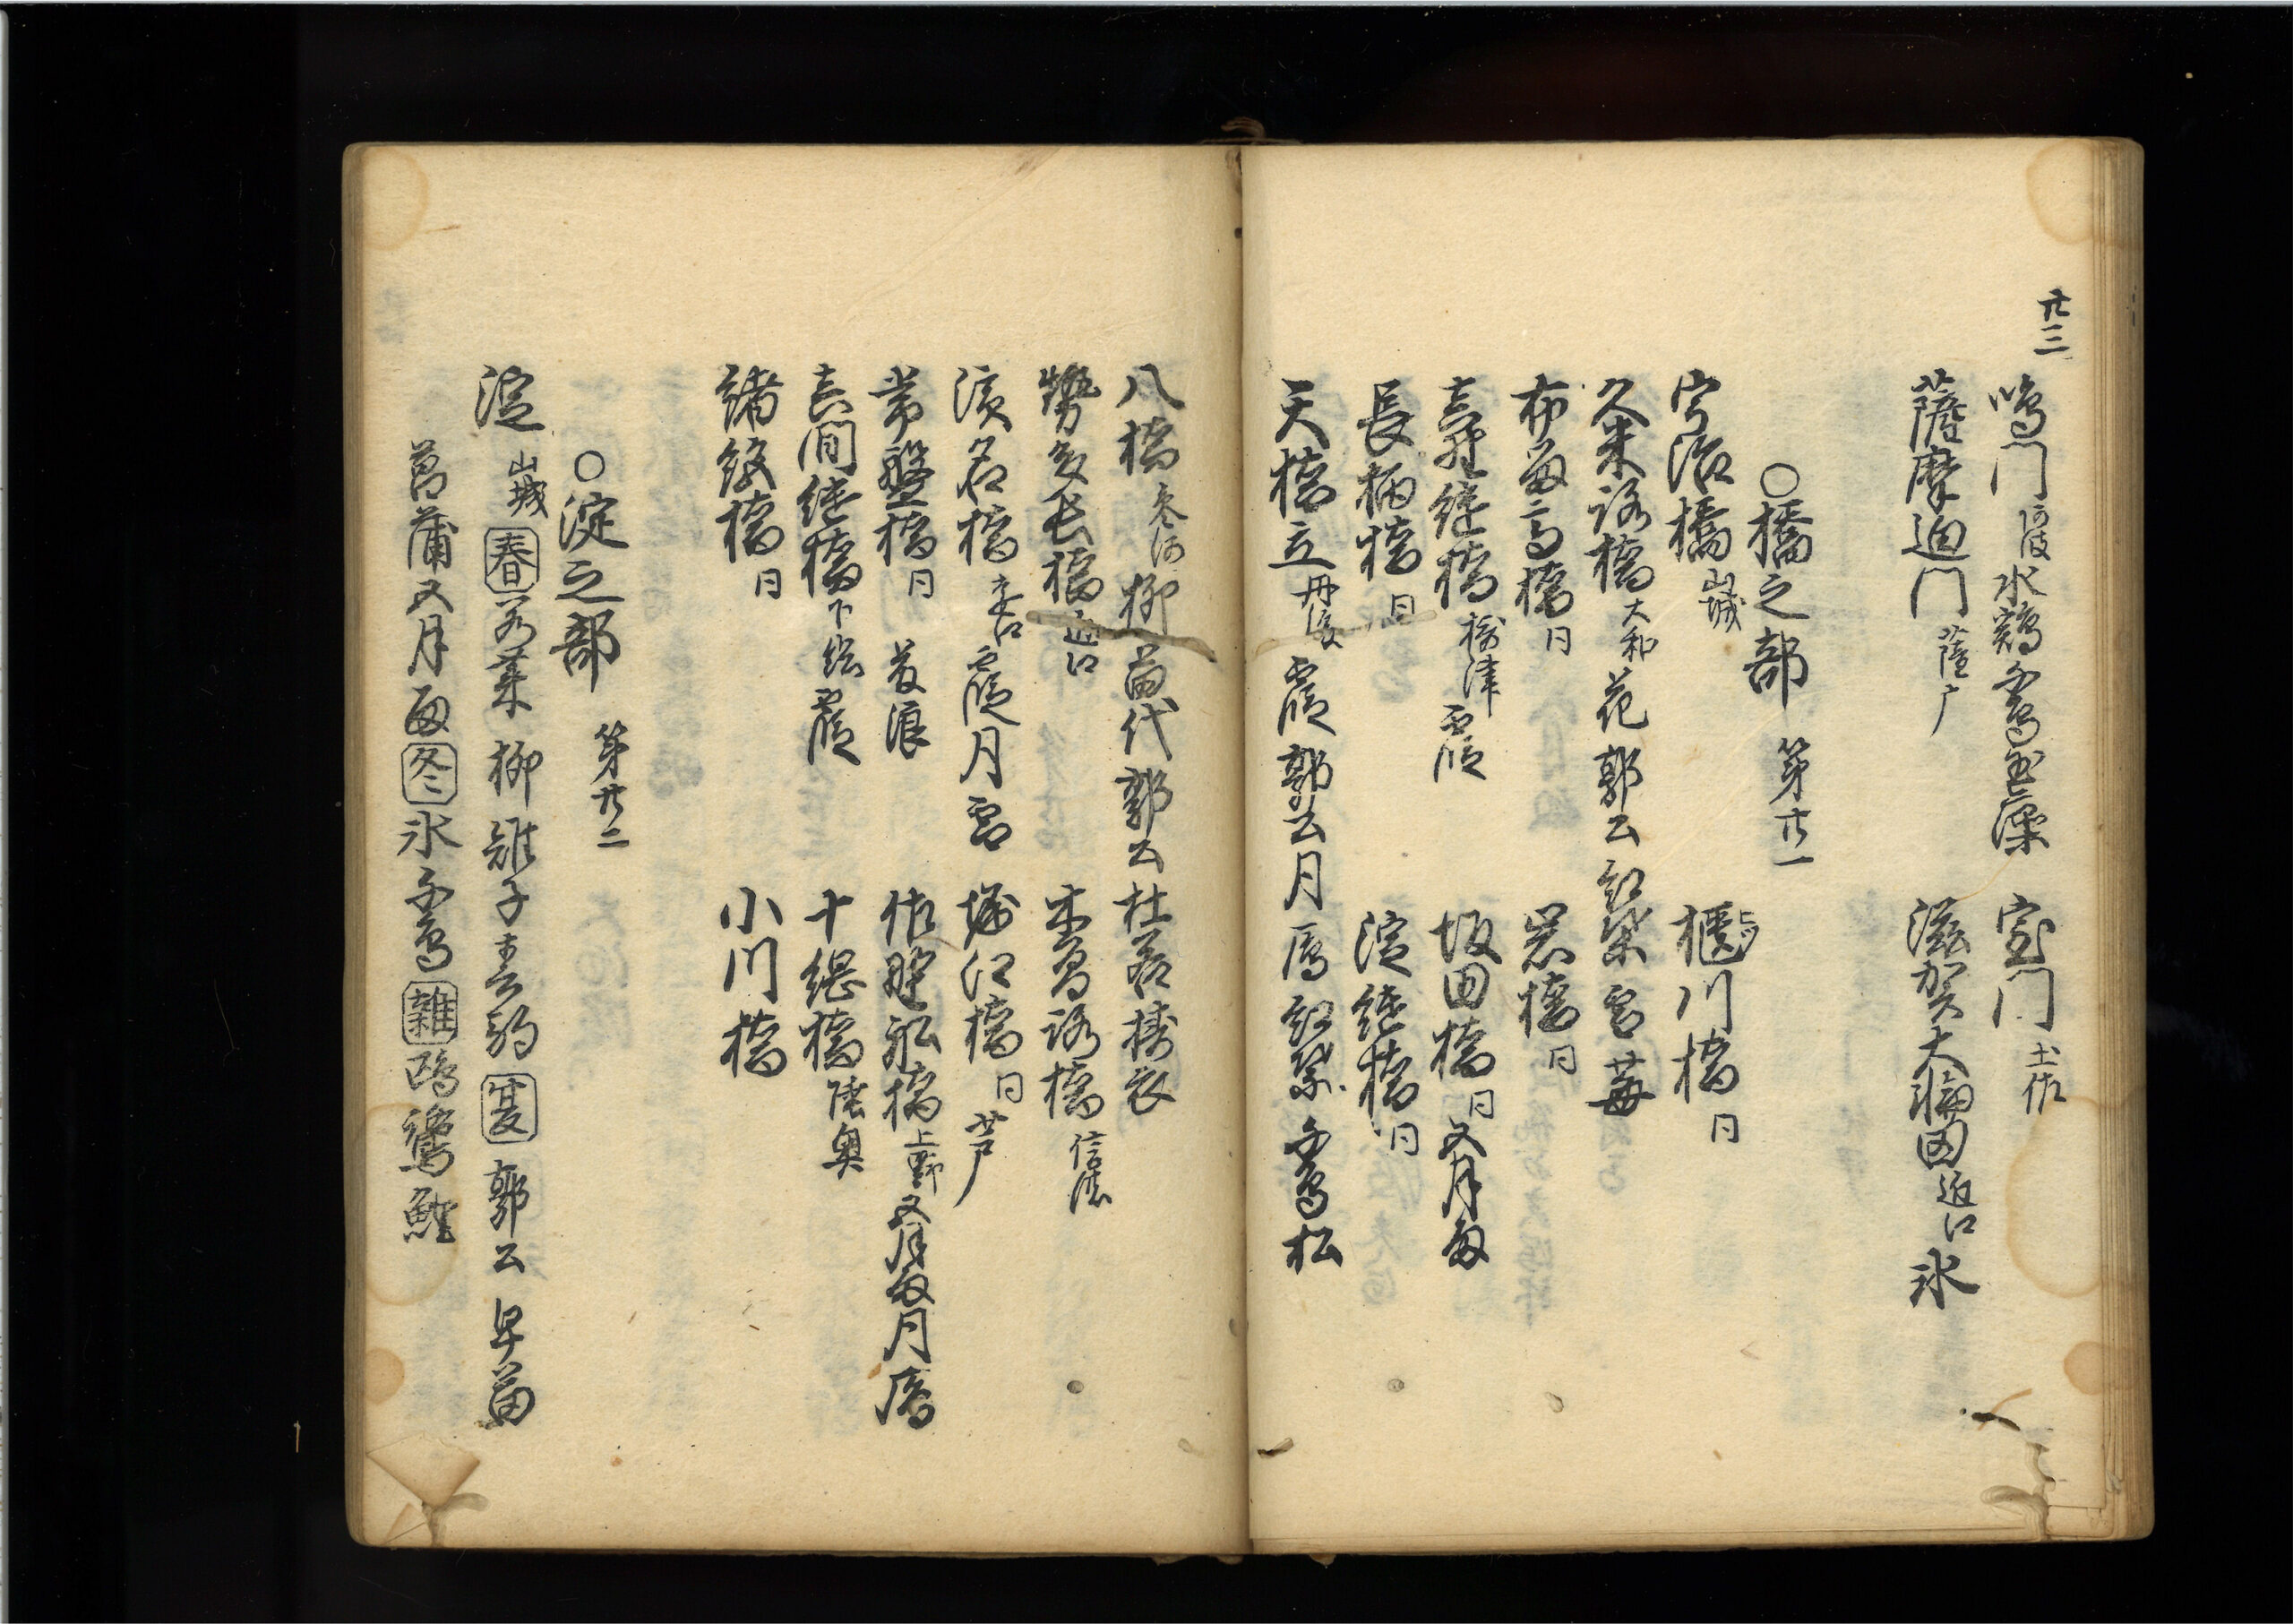 廿三
鳴門 阿波 水鶏 千鳥 玉藻 室門 土佐
薩摩迫門 薩广 滋賀大輪田 近江 氷
○橋之部 第廿一
宇治橋 山城 櫃川橋 同
久米路橋 大和 花 郭公 紅葉 雪 苺
布留高橋 同 岩橋 同
真野継橋 摂津 霞 坂田橋 同 五月雨
長柄橋 同 淀継橋 同
天橋立 丹後 霞 郭公 月 雁 紅葉 千鳥 松
八橋 参河 柳 苗代 郭公 杜若 擣衣
勢多長橋 近江 木曽路橋 信濃
濱名橋 遠江 霞 月 雪 堀江橋 同 芦
常盤橋 同 岩浪 佐野舩橋 上野 五月雨 月 雁
真間継橋 下総 霞 十綱橋 陸奥
緒絶橋 同 小川橋
○淀之部 第廿二
淀 山城 春 若菜 柳 雉子 春駒 夏 郭公 早苗
菖蒲 五月雨 冬 氷 千鳥 雑 鴎 鷺 鯉